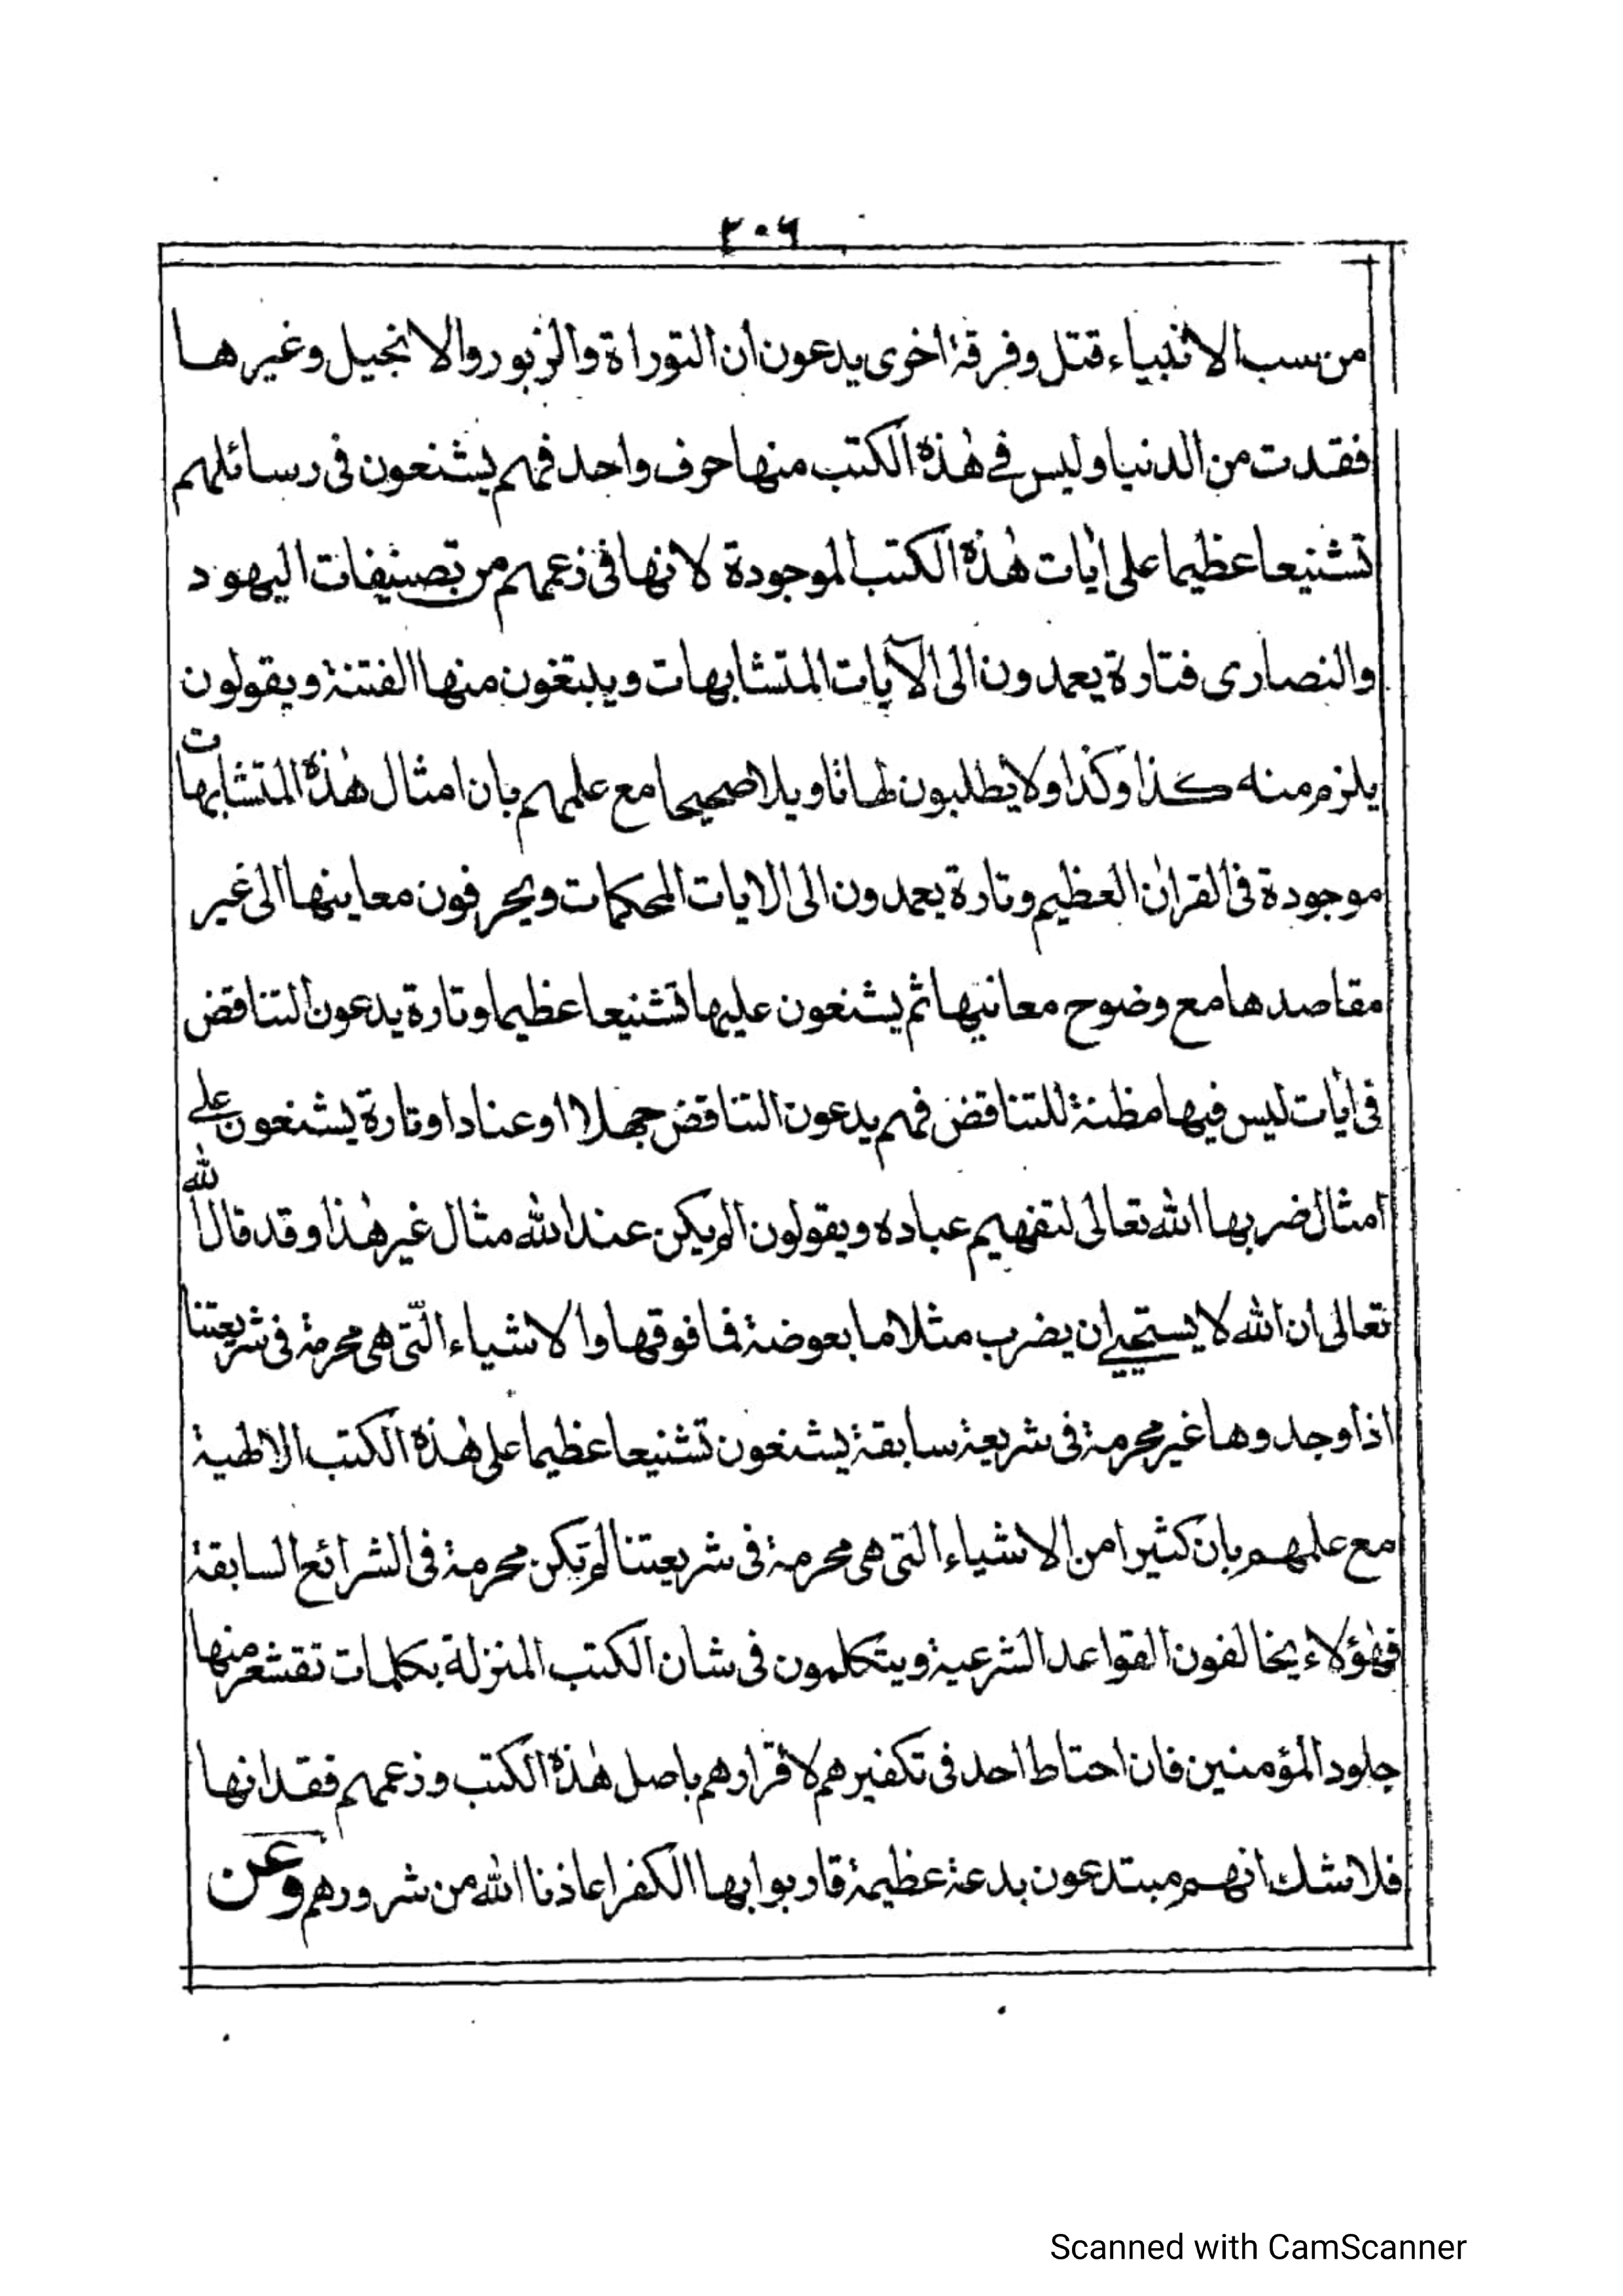 ٢٠٦
من سب الانبياء قتل وفرقة اخرى يدعون ان التوراة والزبور والانجيل وغيرها
فقدت من الدنيا وليس في هٰذه الكتب منها حرف واحد فهم يشنعون فى رسائلهم
تشنيعا عظيما على اٰيات هٰذه الكتب الموجودة لانها فى زعمهم من تصنيفات اليهود
والنصارى فتارة يعمدون الى الآيات المتشابهات ويبتغون منها الفتنة ويقولون
يلزم منه كذا وكذا ولا يطلبون لها تاويلا صحيحا مع علمهم بان امثال هٰذه المتشابهات
موجودة فى القراٰن العظيم وتارة يعمدون الى الايات المحكمات ويحرفون معاينها الى غير
مقاصدها مع وضوح معانيها ثم يشنعون عليها تشنيعا عظيما وتارة يدعون التناقض
فى اٰيات ليس فيها مظنة للتناقض فهم يدعون التناقض جهلا او عنادا وتارة يشنعون على
امثال ضربها الله تعالى لتفهيم عباده ويقولون الم يكن عند الله مثال غير هٰذا وقد قال الله
تعالى ان الله لا يستحيي ان يضرب مثلا ما بعوضة فما فوقها والاشياء التى هى محرمة فى شريعتنا
اذا وجدوها غير محرمة فى شريعة سابقة يشنعون تشنيعا عظيما على هٰذه الكتب الالهية
مع علمهم بان كثيرا من الاشياء التى هى محرمة فى شريعتنا لم تكن محرمة فى الشرائع السابقة
فهٰؤلاء يخالفون القواعد الشرعية ويتكلمون فى شان الكتب المنزلة بكلمات تقشعر منها
جلود المؤمنين فان احتاط احد فى تكفيرهم لاقرارهم باصل هٰذه الكتب وزعمهم فقدانها
فلا شك انهم مبتدعون بدعة عظيمة قاربوا بها الكفر اعاذنا الله من شرورهم وعن
Scanned with CamScanner